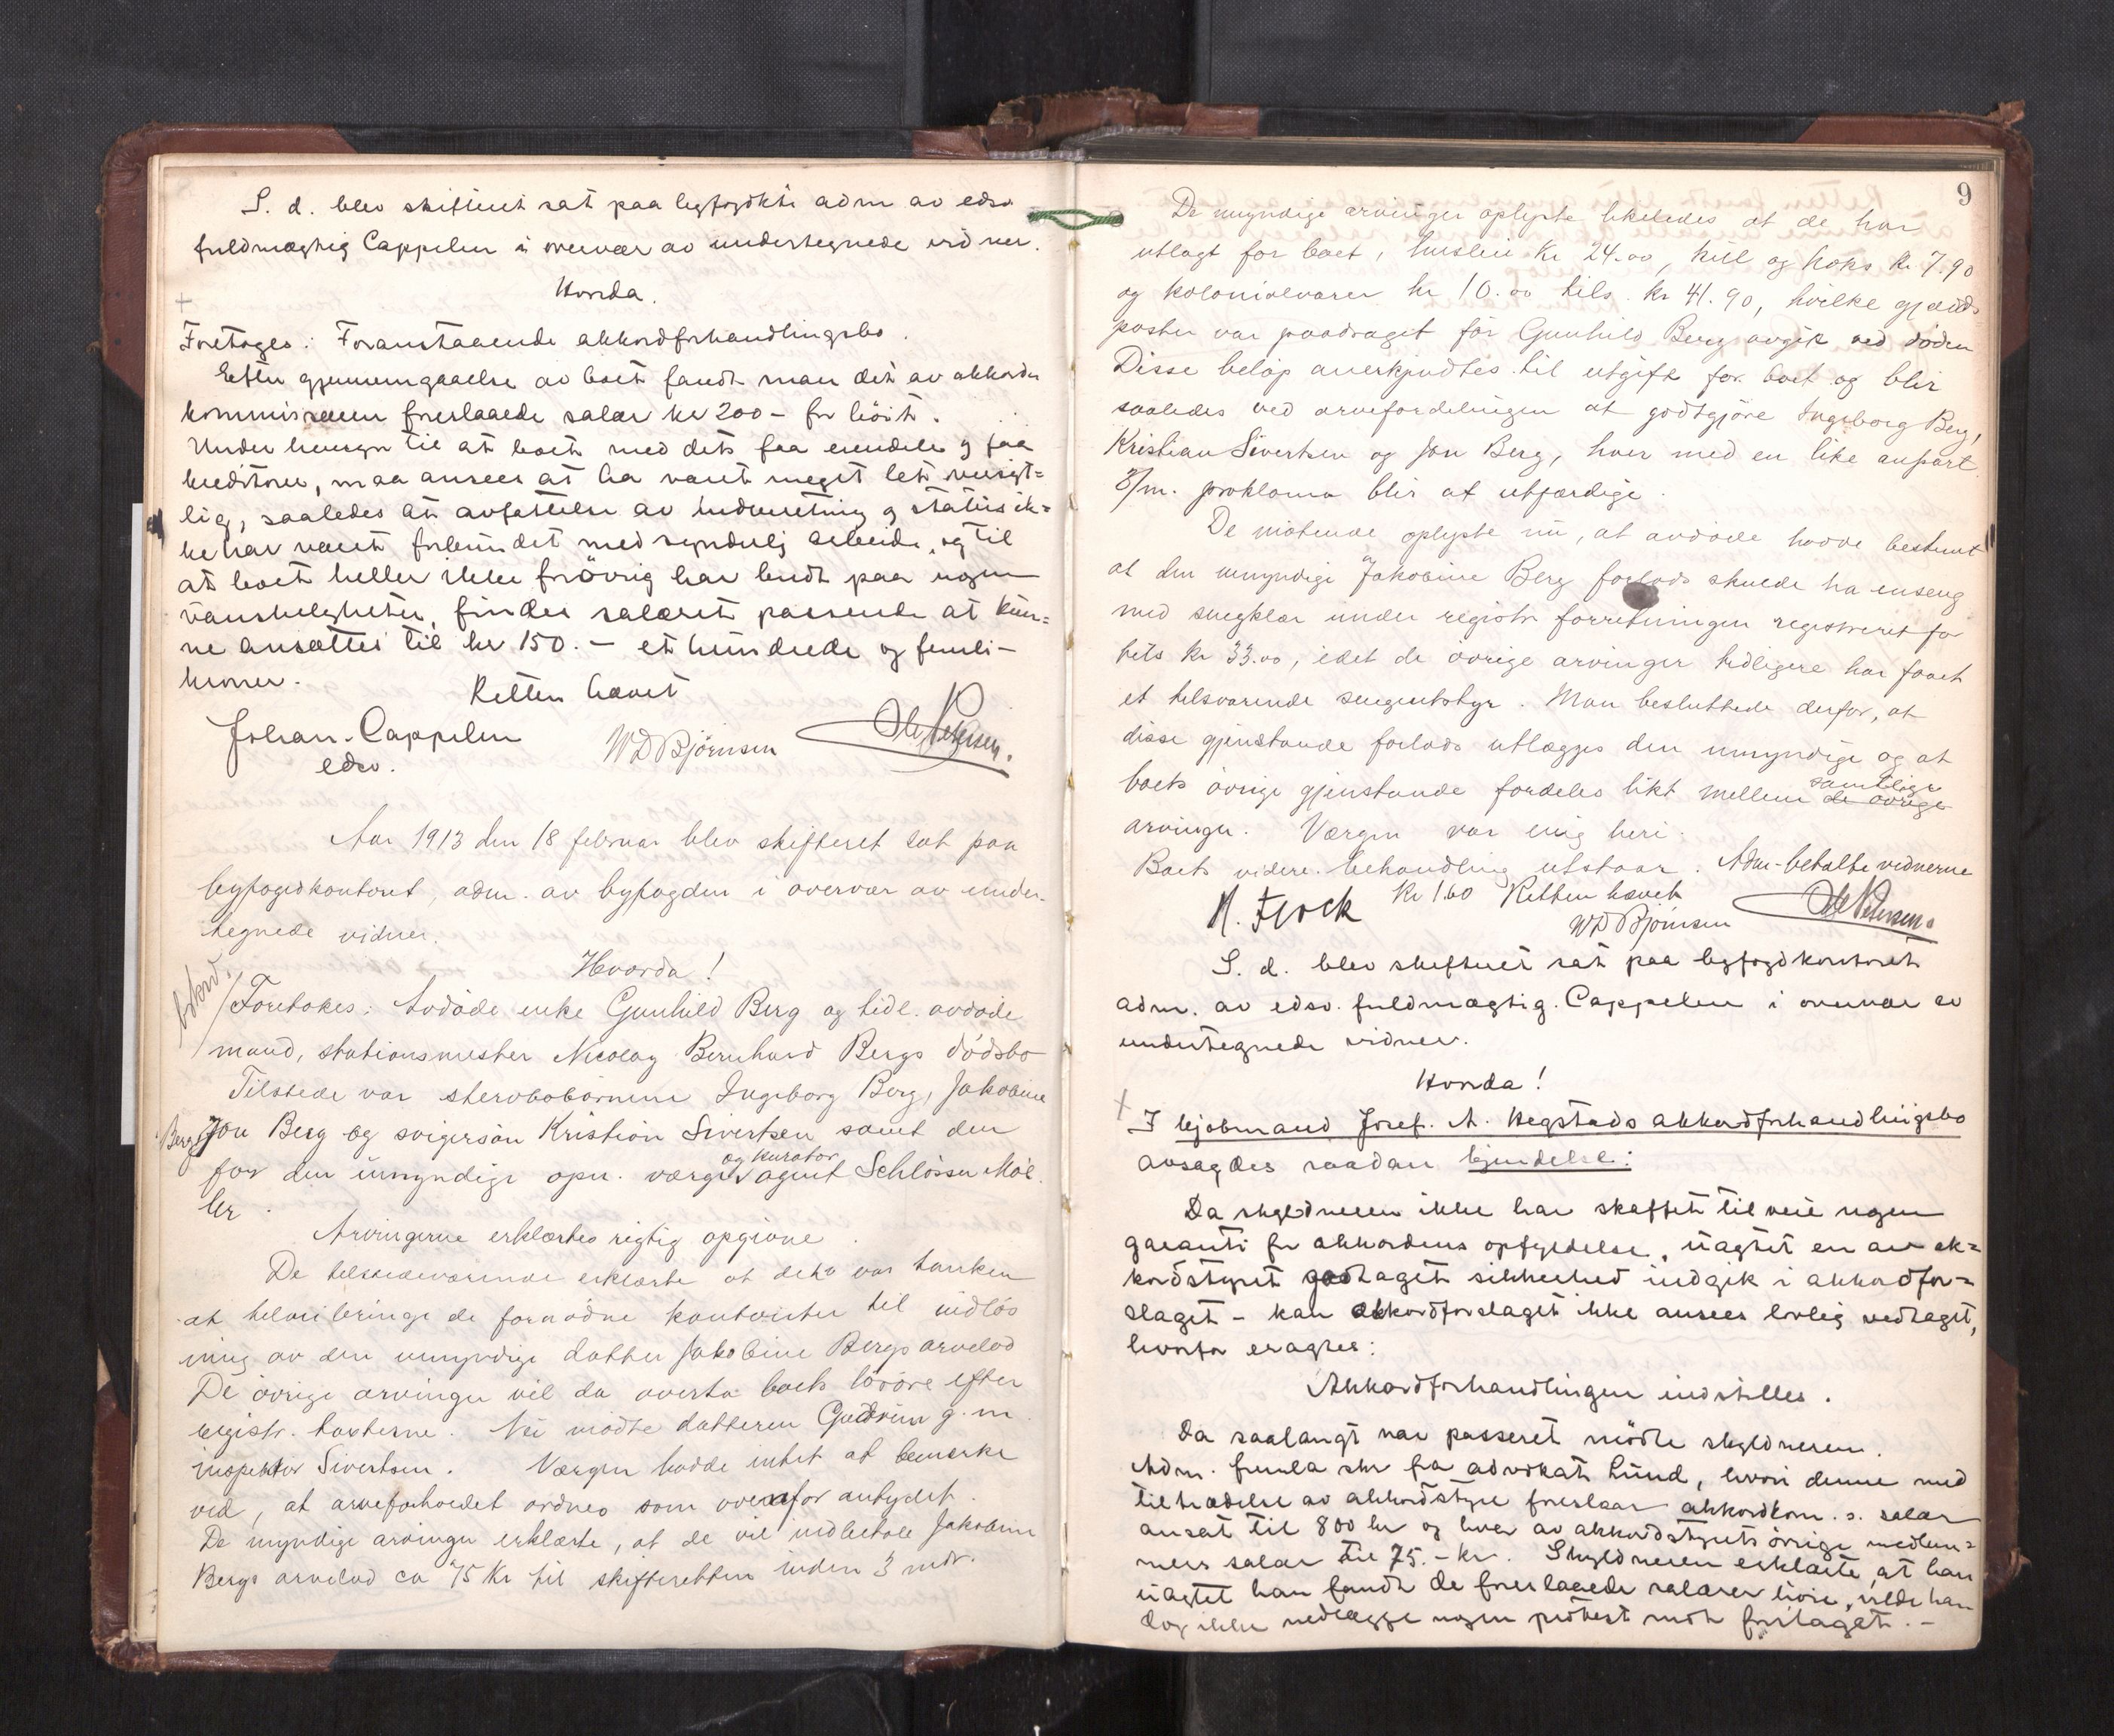 S. d. blev skifteret sat paa byfogdkt. adm av edsv.
fuldmægtig Cappelen i overvær av undertegnede vidner.
Hvorda.
Foretages: Foranstaaende akkordforhandlingsbo.
Efter gjennemgaaelse av boet fandt man det av akkord-
kommissæren foreslaaede salær kr 200 – for höit.
Under hensyn til at boet med dets faa eiendele og faa
kreditorer, maa ansees at ha været meget let oversigt=
lig, saaledes at avfattelse av indberetning og status ik=
ke har været forbundet med synderlig arbeide, og til
at boet heller ikke forövrig har budt paa nogen
vanskeligheter, findes salæret passende at kun=
ne ansættes til kr 150. – et hundrede og femti –
kroner.
Retten hævet
Johan Cappelen
edsv.
W D Björnsen
Ole Petersen.
Aar 1913 den 18 februar blev skifteret sat paa
byfogdkontoret, adm. av byfogden i overvær av under-
tegnede vidner.
Hvorda!
Foretokes: Avdöde enke Gunhild Berg og tidl. avdöde
mand, stationsmester Nicolay Bernhard Bergs dödsbo
Tilstede var stervbobörnene Ingeborg Berg, Jakobine
Berg Jon Berg og svigersön Kristian Sivertsen samt den
for den umyndige opn. værge og kurator agent Schlösser Möl
ler.
Arvingerne erklærtes rigtig opgivne.
De tilstedeværende erklærte at det var tanken
at tilveiebringe de fornödne kontanter til indlös
ning av den umyndige datter Jakobine Bergs arvelod
De övrige arvinger vil da overta boets lösöre efter
registr. taxterne. Nu mödte datteren Gudrun g. m.
inspektör Sivertsen. Værgen hadde intet at bemerke
ved, at arveforholdet ordnes som ovenfor antydet.
De myndige arvinger erklærte, at de vil indbetale Jakobine
Bergs arvelod ca 75 Kr til skifteretten inden 3 mdr.
9
De myndige arvinger oplyste likeledes at de har
utlagt for boet, husleie Kr 24.00, kul og koks Kr 7.90
og kolonialvarer kr 10.00 tils. kr 41.90, hvilke gjælds
poster var paadraget för Gunhild Berg avgik ved döden
Disse belöp anerkjendtes til utgift for boet og blir
saaledes ved arvefordelingen at godtgjöre Ingeborg Berg,
Kristian Sivertsen og Jon Berg, hver med en like anpart
proklama blir at utfærdige.
De mötende oplyste nu, at avdöde hadde bestemt
at den umyndige Jakobine Berg forlods skulde ha en seng
med sengklær under registr. forretningen registreret for
tils Kr 33.00, idet de övrige arvinger tidligere har faaet
et tilsvarende sengeutstyr. Man besluttede derfor, at
disse gjenstande forlods utlægges den umyndige og at
boets övrige gjenstande fordeles likt mellem de övrige samtlige
arvinger. Værgen var enig heri.
Boets videre behandling utstaar. Adm. betalte vidnerne
Kr 1.60 Retten hævet
N. Flock
W D Björnsen
Ole Petersen.
S. d. blev skifteret sat paa byfogdkontoret
adm. av edsv. fuldmægtig Cappelen i overvær av
undertegnede vidner.
Hvorda!
I kjöbmand Josef. A. Hegstads akkordforhandlingsbo
avsagdes saadan kjendelse:
Da skyldneren ikke har skaffet tilveie nogen
garanti for akkordens opfyldelse, uagtet en av ak=
kordstyret godtaget sikkerhed indgik i akkordfor=
slaget – kan akkordforslaget ikke ansees lovlig vedtaget,
hvorfor eragtes:
Akkordforhandlingen indstilles.
Da saalangt var passeret mödte skyldneren.
Adm. fremla skr fra advokat Lund, hvori denne med
tiltrædelse av akkordstyret foreslaar akkordkom. s. salær
ansat til 800 kr og hver av akkordstyrets övrige medlem=
mers salær til 75. – kr. Skyldneren erklærte, at han
uagtet han fandt de foreslaaede salærer höie, vilde han
dog ikke nedlægge nogen protest mot forslaget. –